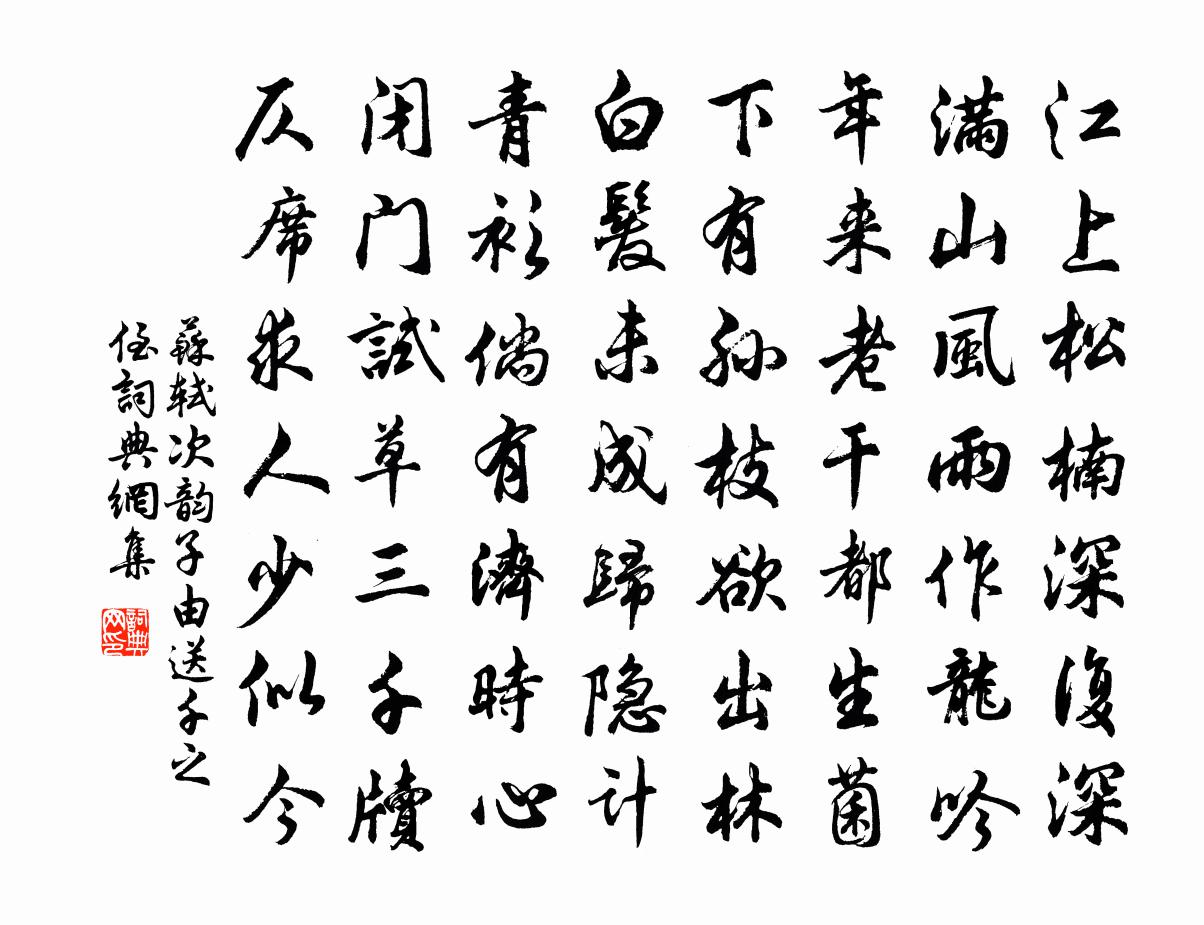 江上松楠深復深
滿山風雨作龍吟
年来老干都生菌
下有孙枝欲出林
白髮未成歸隐计
青衫倘有濟時心
闭门試草三千牘
仄席求人少似今
蘇軾次韵子由送千之
侄詞典網集
詞典网印